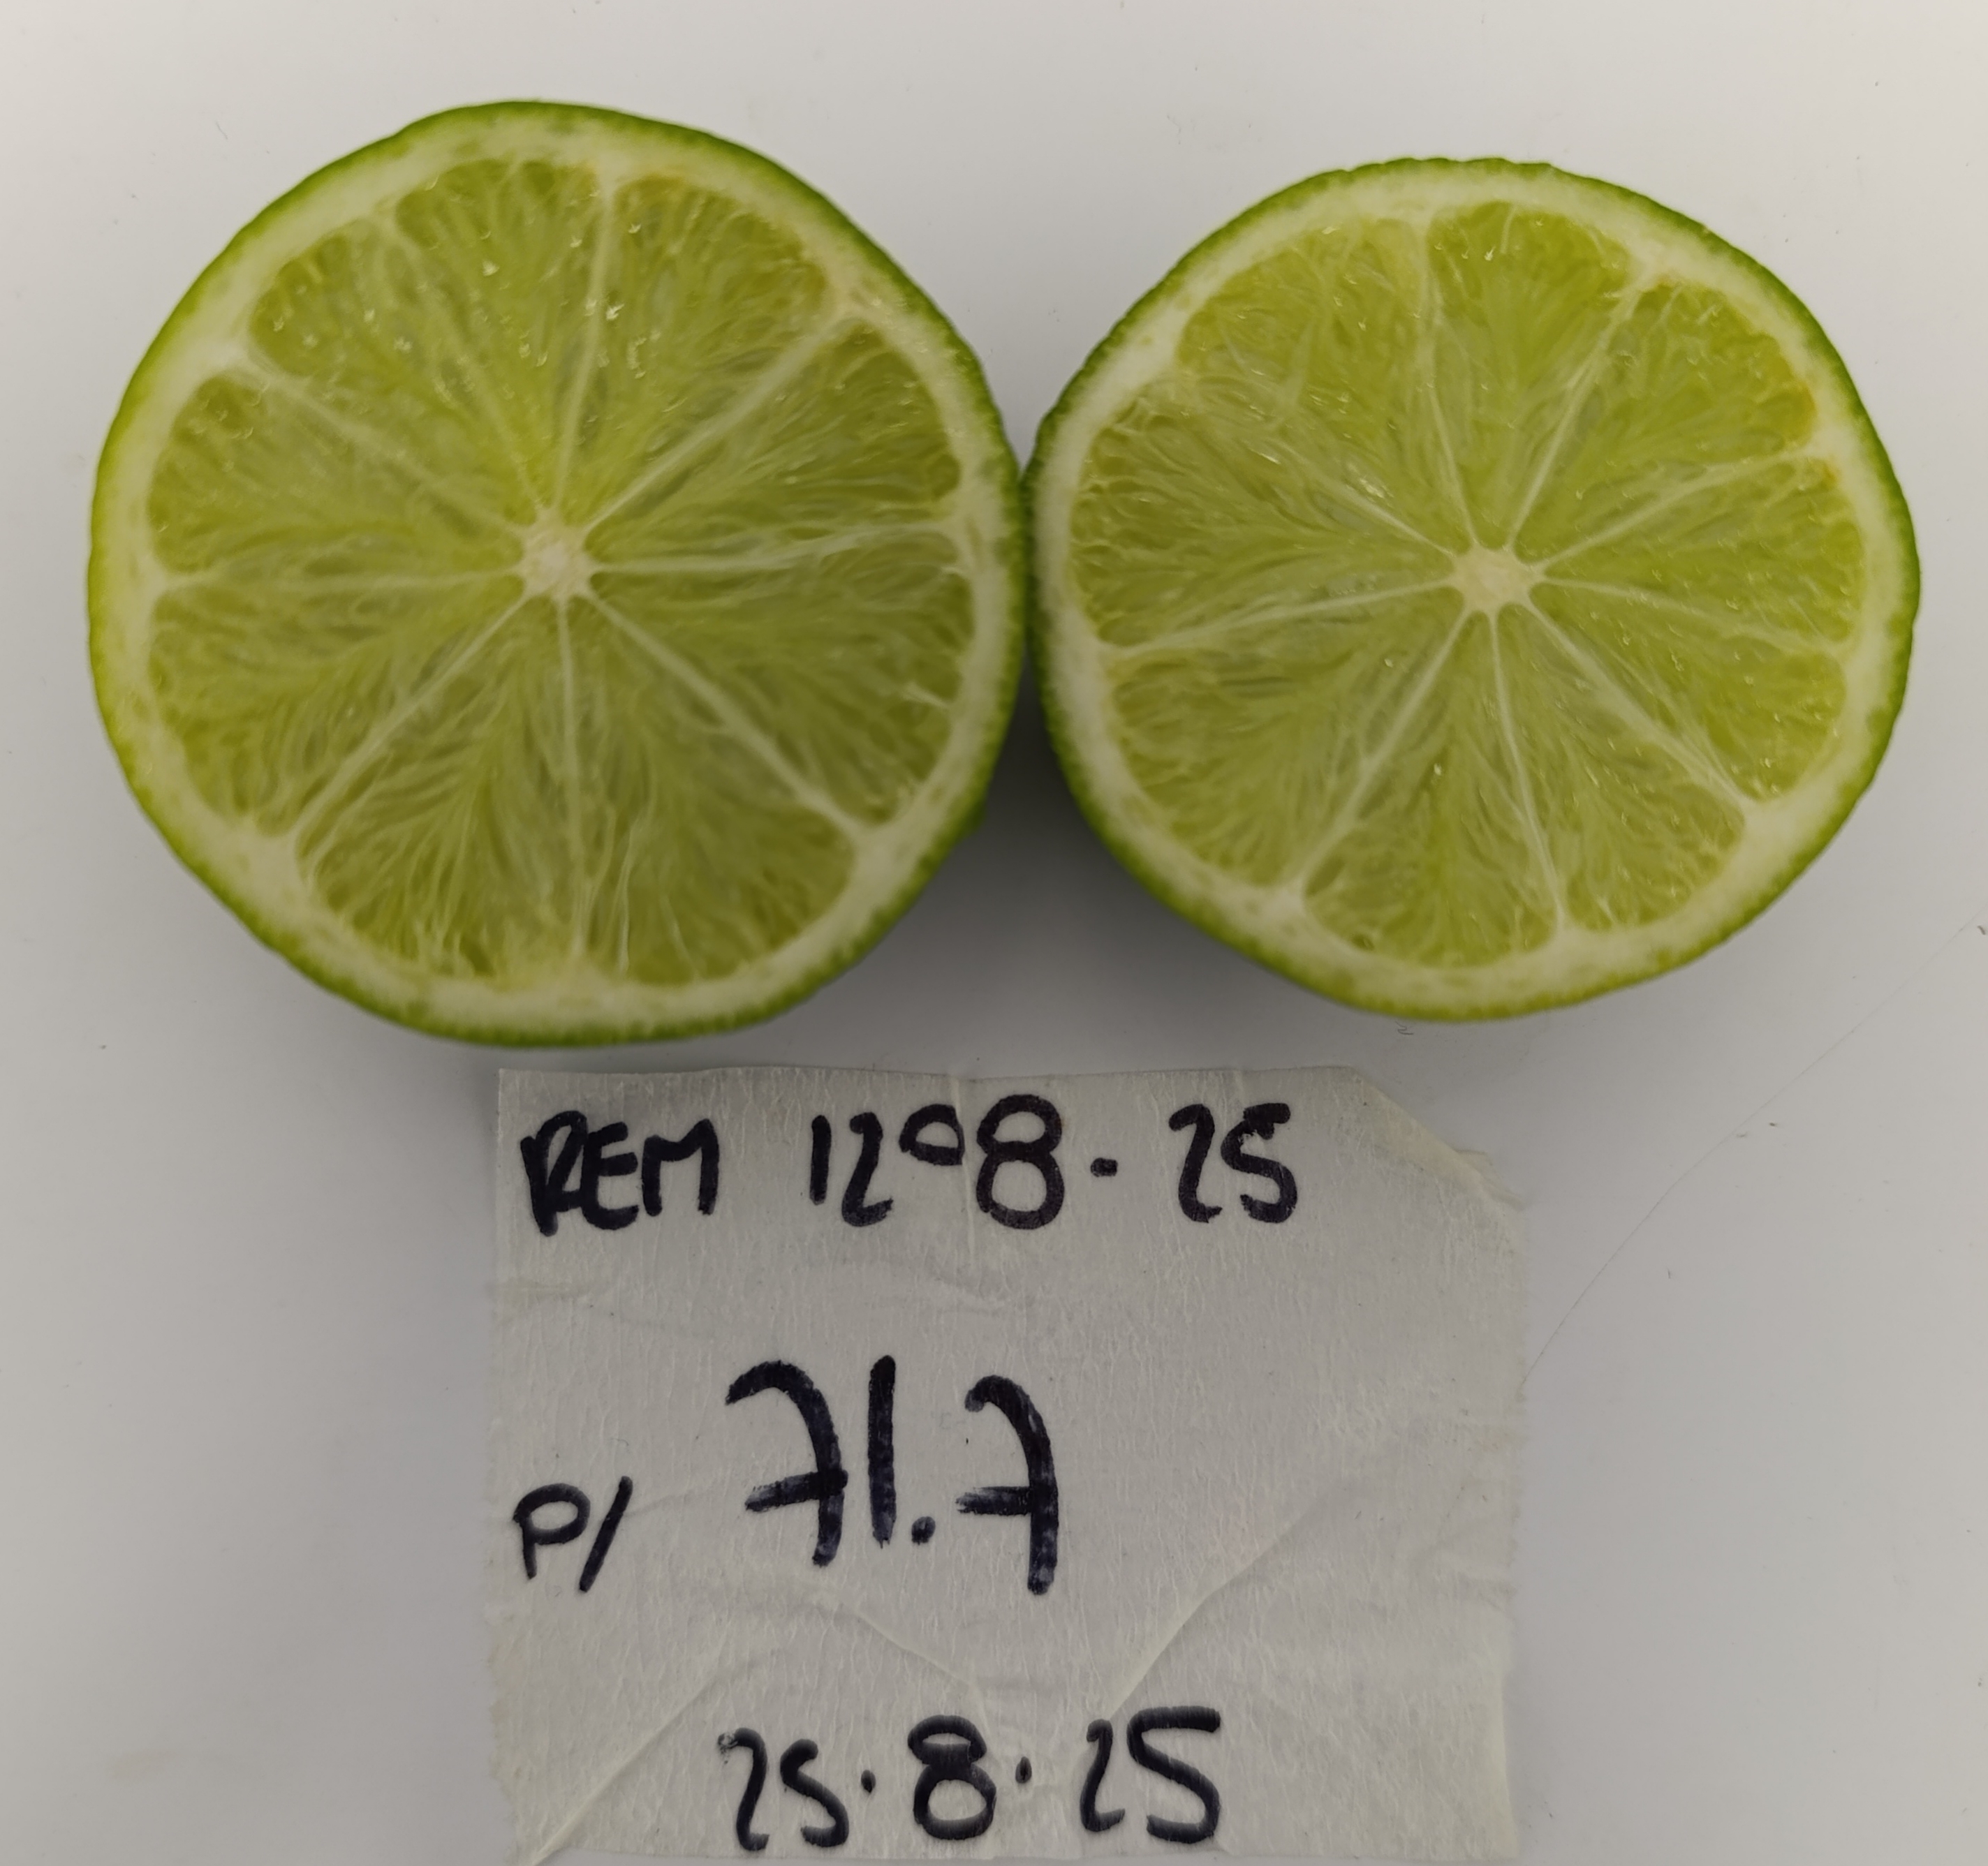 REM 1208. 25
P/ 71.7
25.8.25